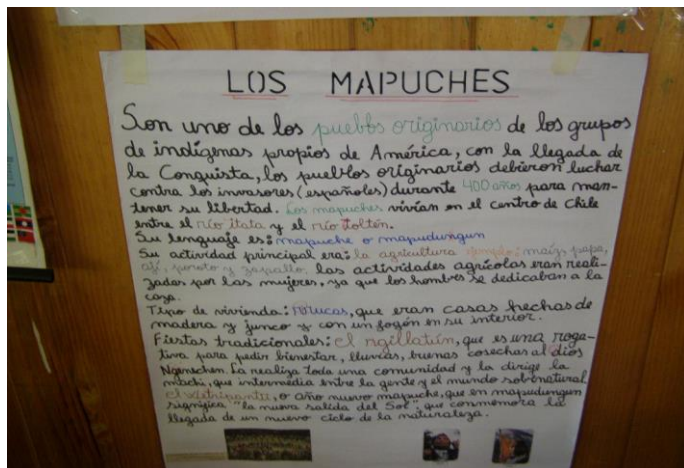 LOS MAPUCHES
Son uno de los pueblos originarios de los grupos
de indígenas propios de América, con la llegada de
la Conquista, los pueblos originarios debieron luchar
contra los invasores (españoles) durante 400 años para man-
tener su libertad. Los mapuches vivían en el centro de Chile
entre el río Itata y el río Toltén.
Su lenguaje es: mapuche o mapudungun
Su actividad principal era: la agricultura ejemplo: maíz, papa,
ají, poroto y zapallo. las actividades agrícolas eran reali-
zadas por las mujeres, ya que los hombres se dedicaban a la
caza.
Tipo de vivienda: rucas, que eran casas hechas de
madera y junco y con un fogón en su interior.
Fiestas tradicionales: el ngillatún, que es una roga-
tiva para pedir bienestar, lluvias, buenas cosechas al dios
Ngenechen. La realiza toda una comunidad y la dirige la
machi, que intermedia entre la gente y el mundo sobrenatural
el, o año nuevo mapuche, que en mapudungun
significa "la nueva salida del Sol", que conmemora la
llegada de un nuevo ciclo de la naturaleza.